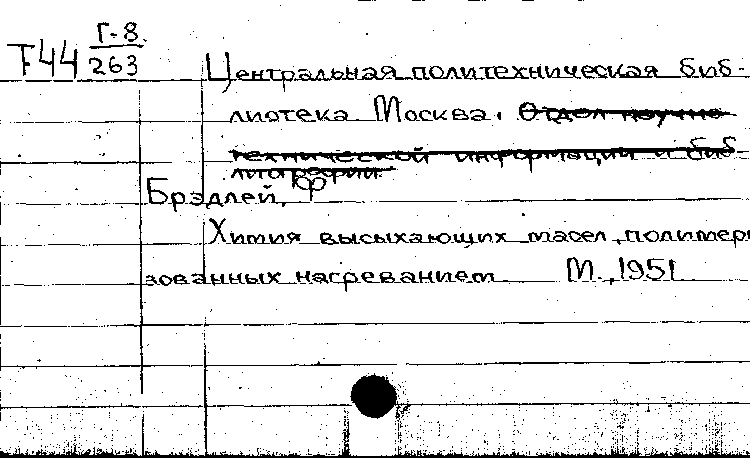 Г-8.
Т44 263
Центральная политехническая биб-
лиотека Москва. Отдел научно
технической информации и биб
лиографии.
Брэдлей, Ф
Химия высыхающих масел, полимери
зованных нагреванием М., 1951